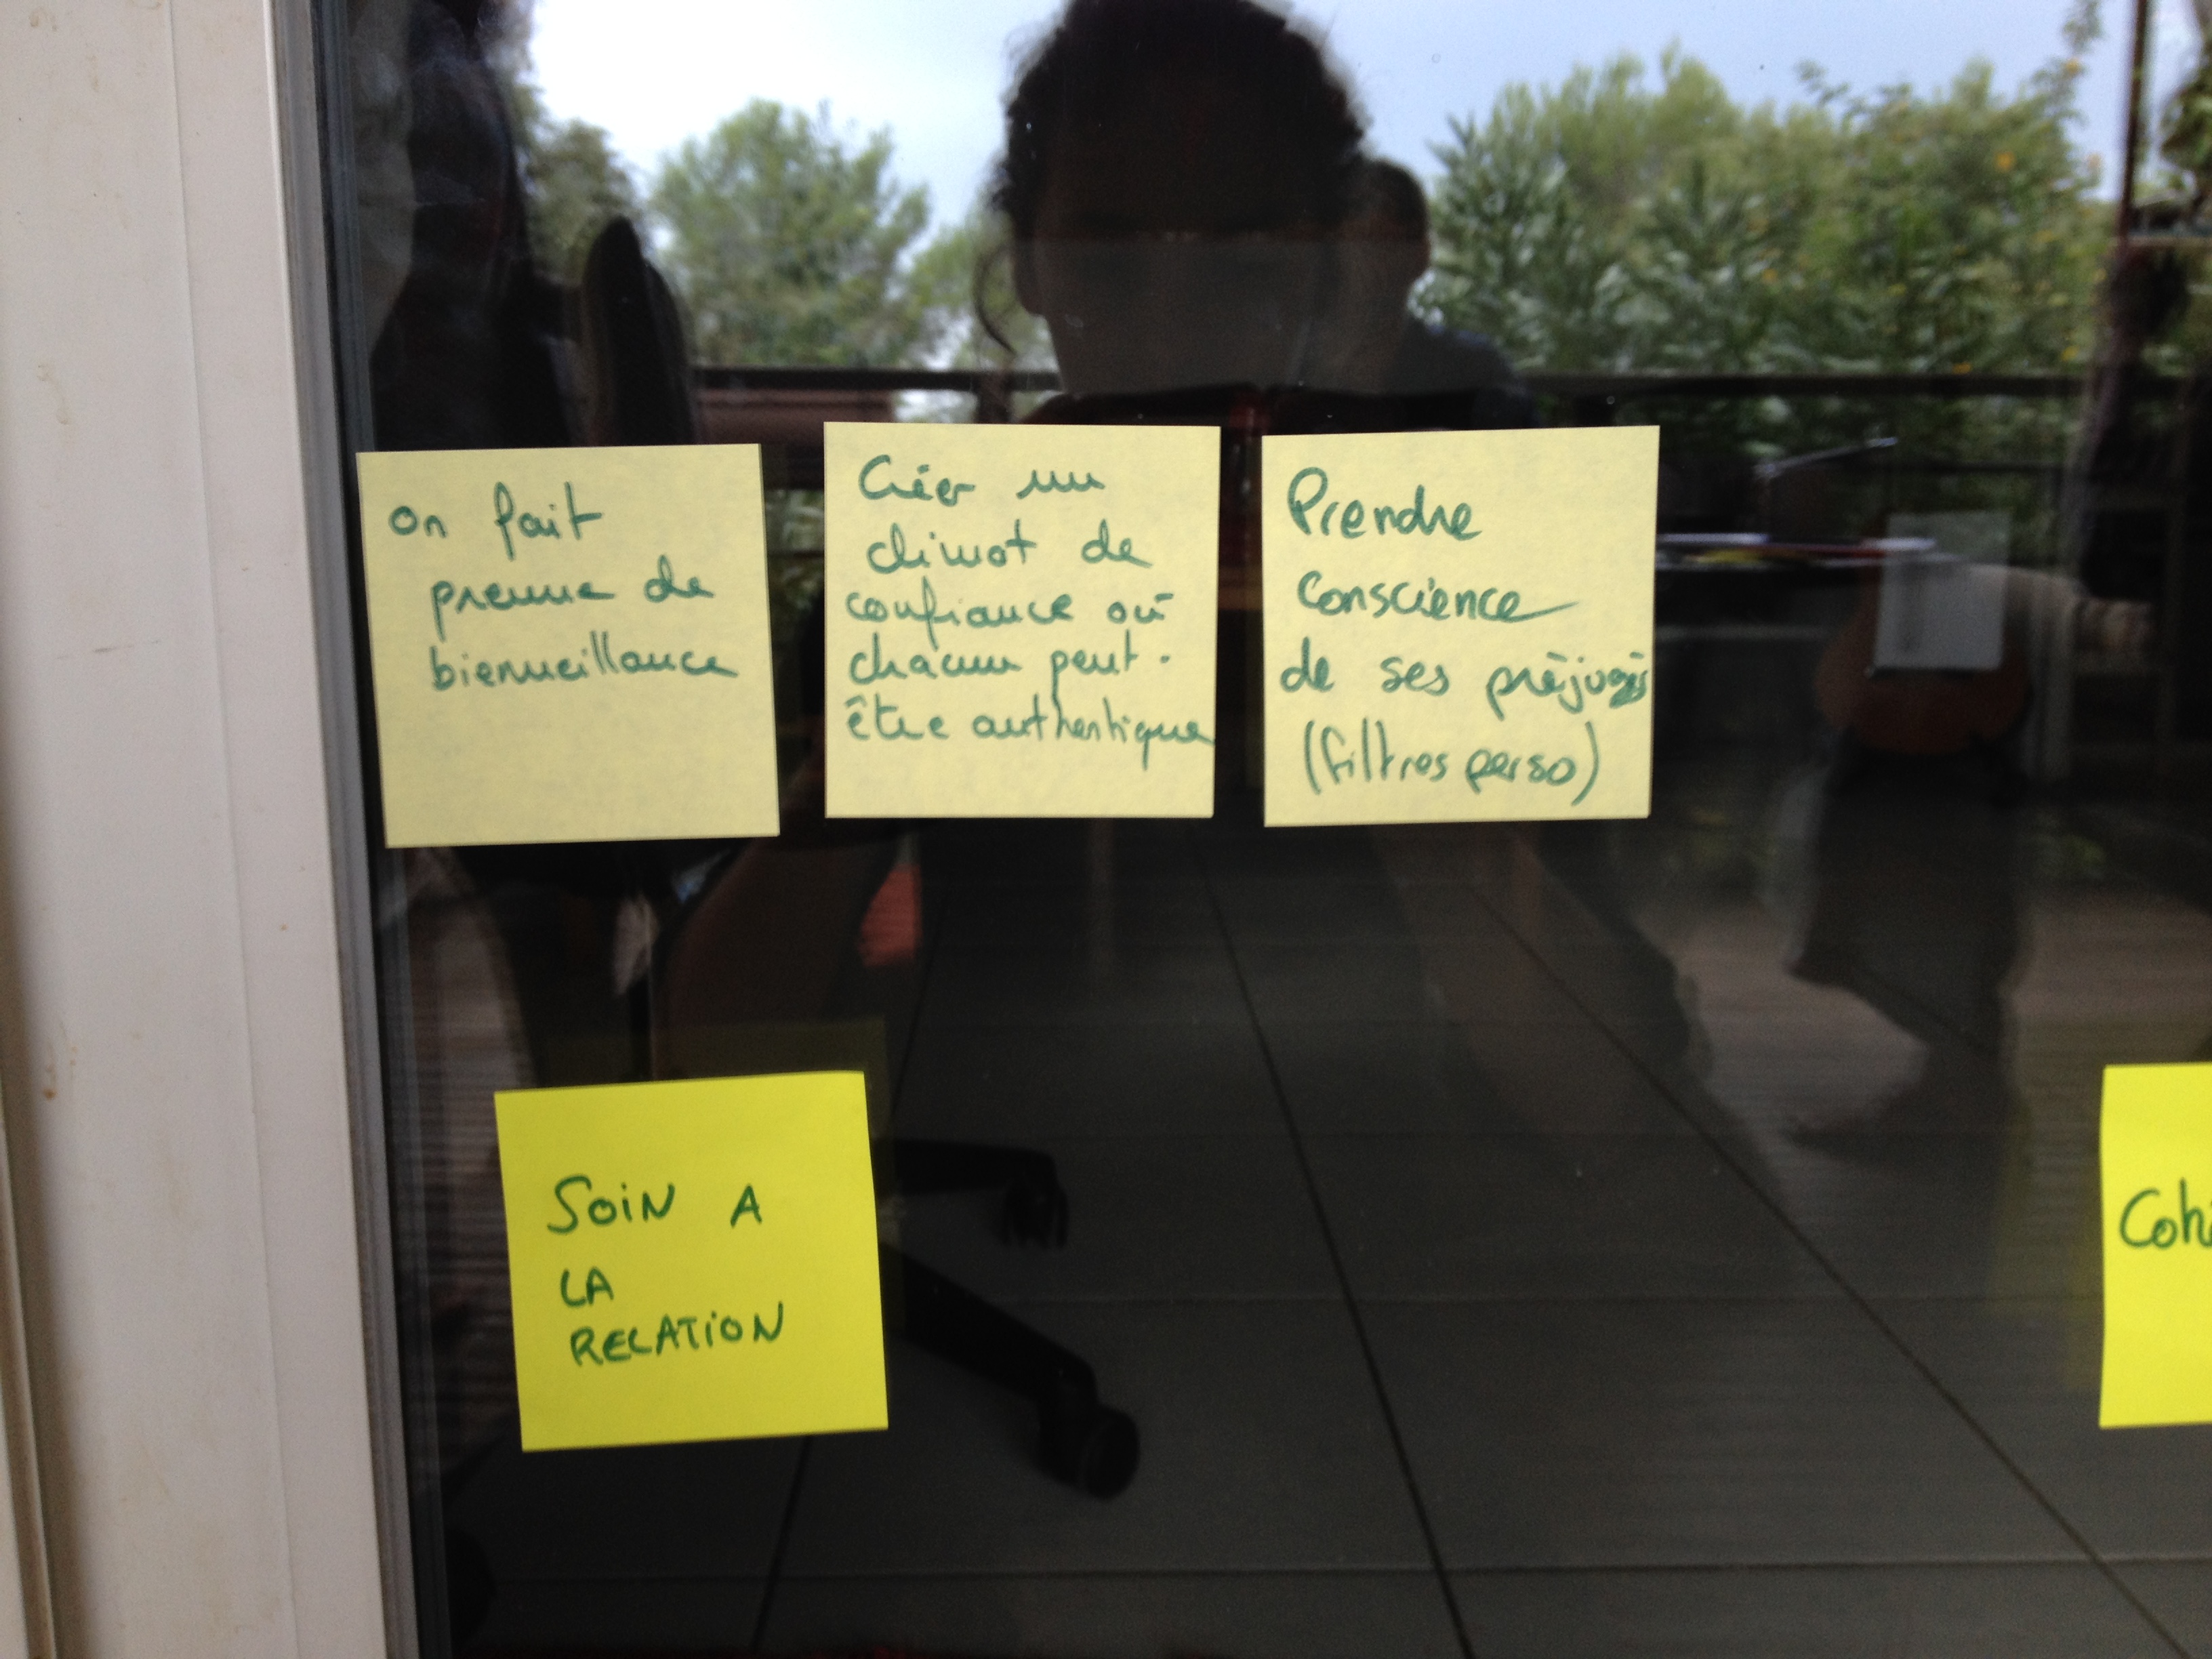 on fait
preuve de
bienveillance
Créer un
climat de
confiance où
chacun peut
être authentique
Prendre
conscience
de ses préjugés
(filtres perso)
SOIN A
LA
RELATION
Coh